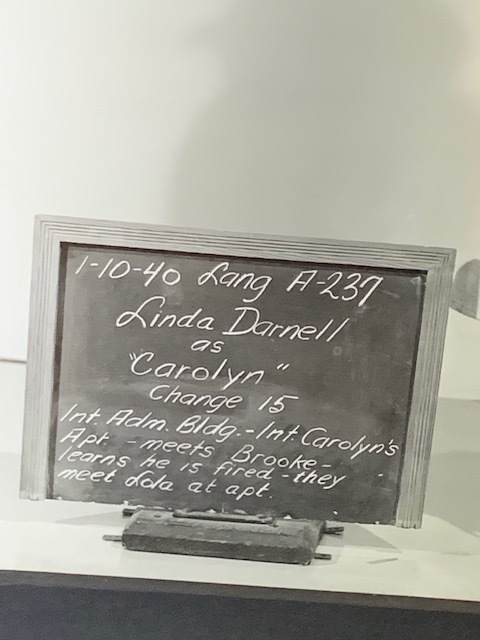 1-10-40 Lang A-237
Linda Darnell
as
"Carolyn"
Change 15
Int. Adm. Bldg. - Int. Carolyn's
Apt. - meets Brooke -
learns he is fired - they
meet Lola at apt.